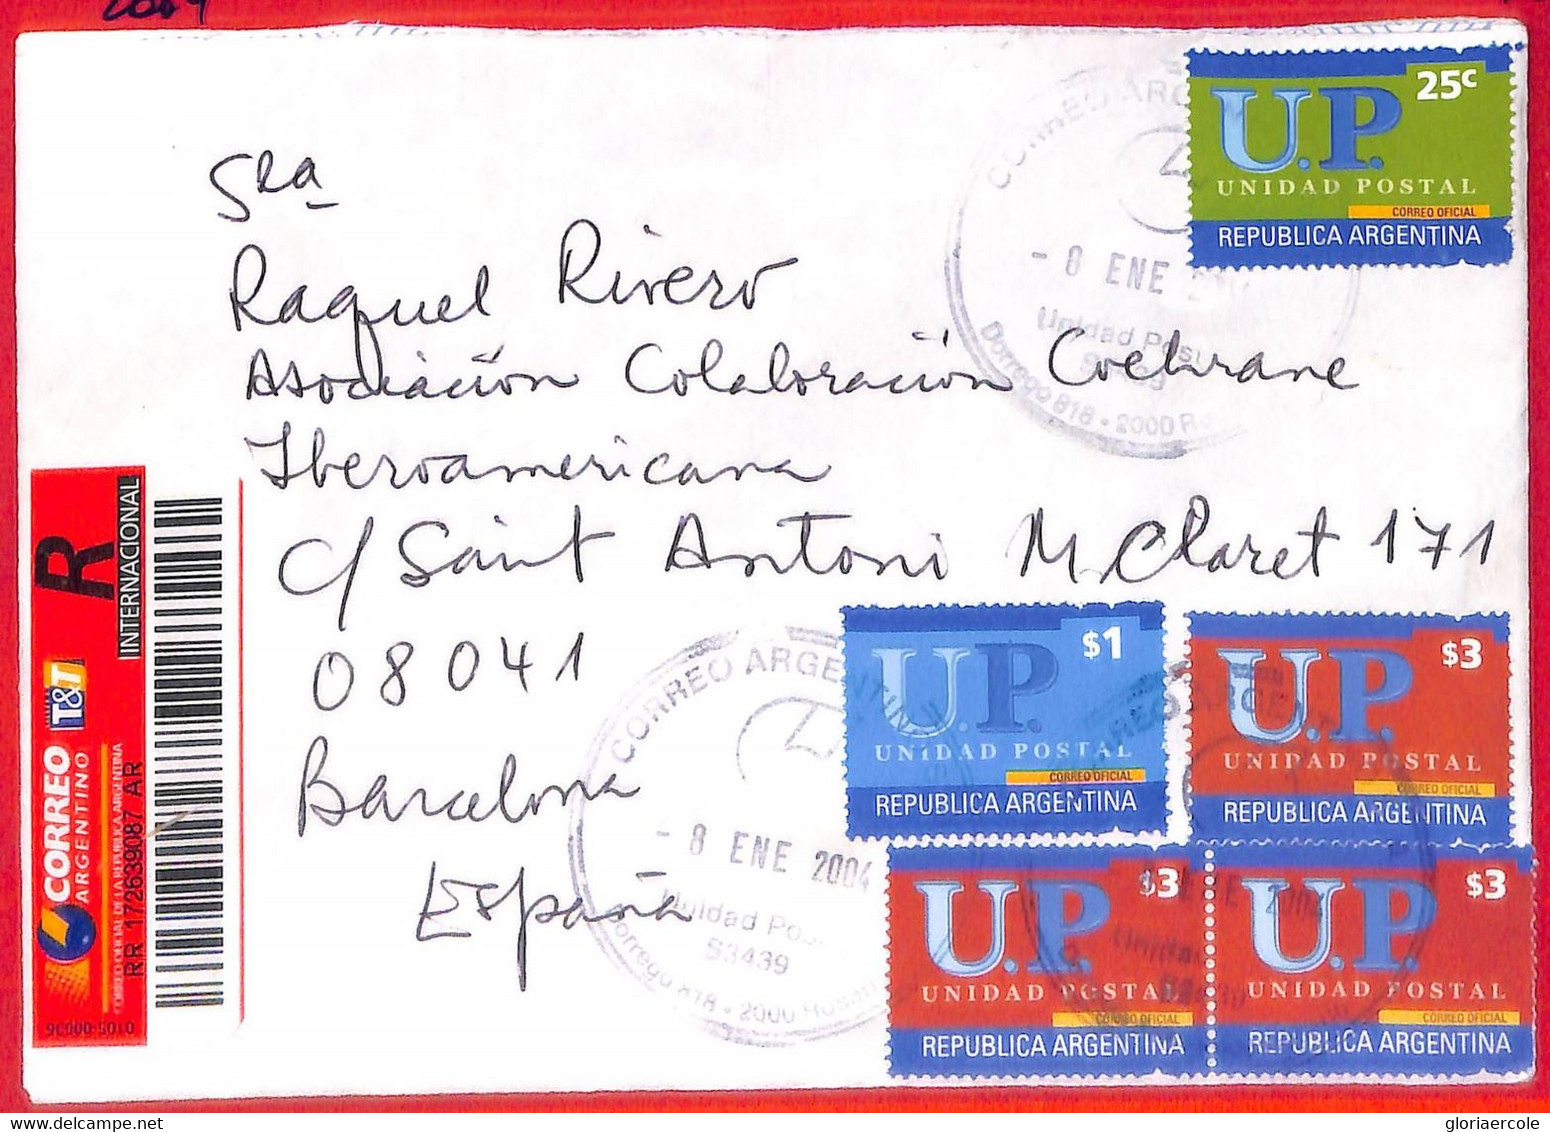 2004
25c
U.P.
UNIDAD POSTAL
CORREO OFICIAL
REPUBLICA ARGENTINA
CORREO ARG
- 8 ENE
Unidad Post
Dorrego 818 - 2000 Ro
Sra
Raquel Rivero
Asociación Colaboración Cochrane
Iberoamericana
c/ Saint Antoni M. Claret 171
08041
Barcelona
España
R
INTERNACIONAL
T&T
CORREO
ARGENTINO
CORREO OFICIAL DE LA REPUBLICA ARGENTINA
RR 172639087 AR
0105-00036
CORREO ARGENTIN
- 8 ENE 2004
Unidad Pos
S3439
Dorrego 818 - 2000 Rosari
$1
U.P.
UNIDAD POSTAL
CORREO OFICIAL
REPUBLICA ARGENTINA
$3
U.P.
UNIDAD POSTAL
CORREO OFICIAL
REPUBLICA ARGENTINA
$3
U.P.
UNIDAD POSTAL
CORREO OFICIAL
REPUBLICA ARGENTINA
$3
U.P.
UNIDAD POSTAL
CORREO OFICIAL
REPUBLICA ARGENTINA
gloriaercole